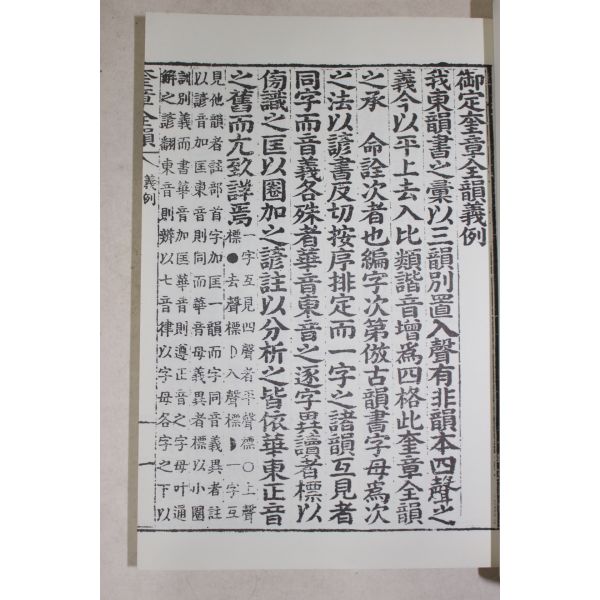 御定奎章全韻義例
我東韻書之彙以三韻別置入聲有非韻本四聲之
義今以平上去入比類諧音增爲四格此奎章全韻
之承　命詮次者也編字次第倣古韻書字母爲次
之法以諺書反切按序排定而一字之諸韻互見者
同字而音義各殊者華音東音之逐字異讀者標以
傍識之匡以圈加之諺註以分析之皆依華東正音
之舊而尤致詳焉
一字互見四聲者平聲標○上聲
標●去聲標D入聲標◗一字互
見他韻者註部首字加匡一韻而字同音義異者註
以諺音加匡東音則同而華音母義異者標以小圈
訓別義而書華音加匡華音則遵正音之字母叶通
解之諺翻東音則辨以七音律以字母各字之下以
奎章全韻 義例 一